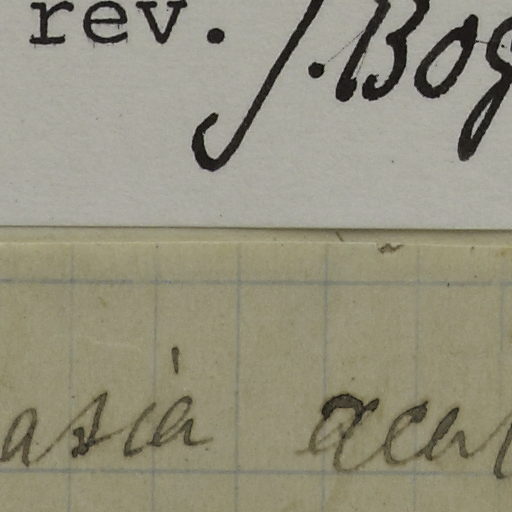 rev. J. Bog
asia acu